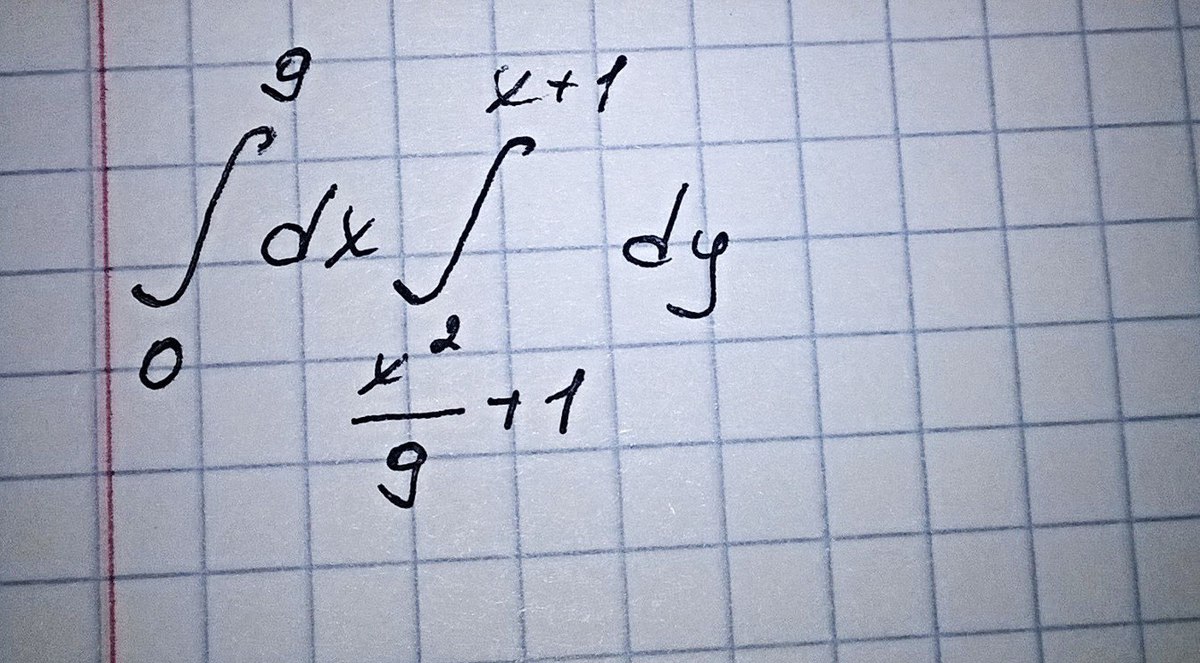 ∫₀⁹ dx ∫_{x²/9 + 1}^{x+1} dy